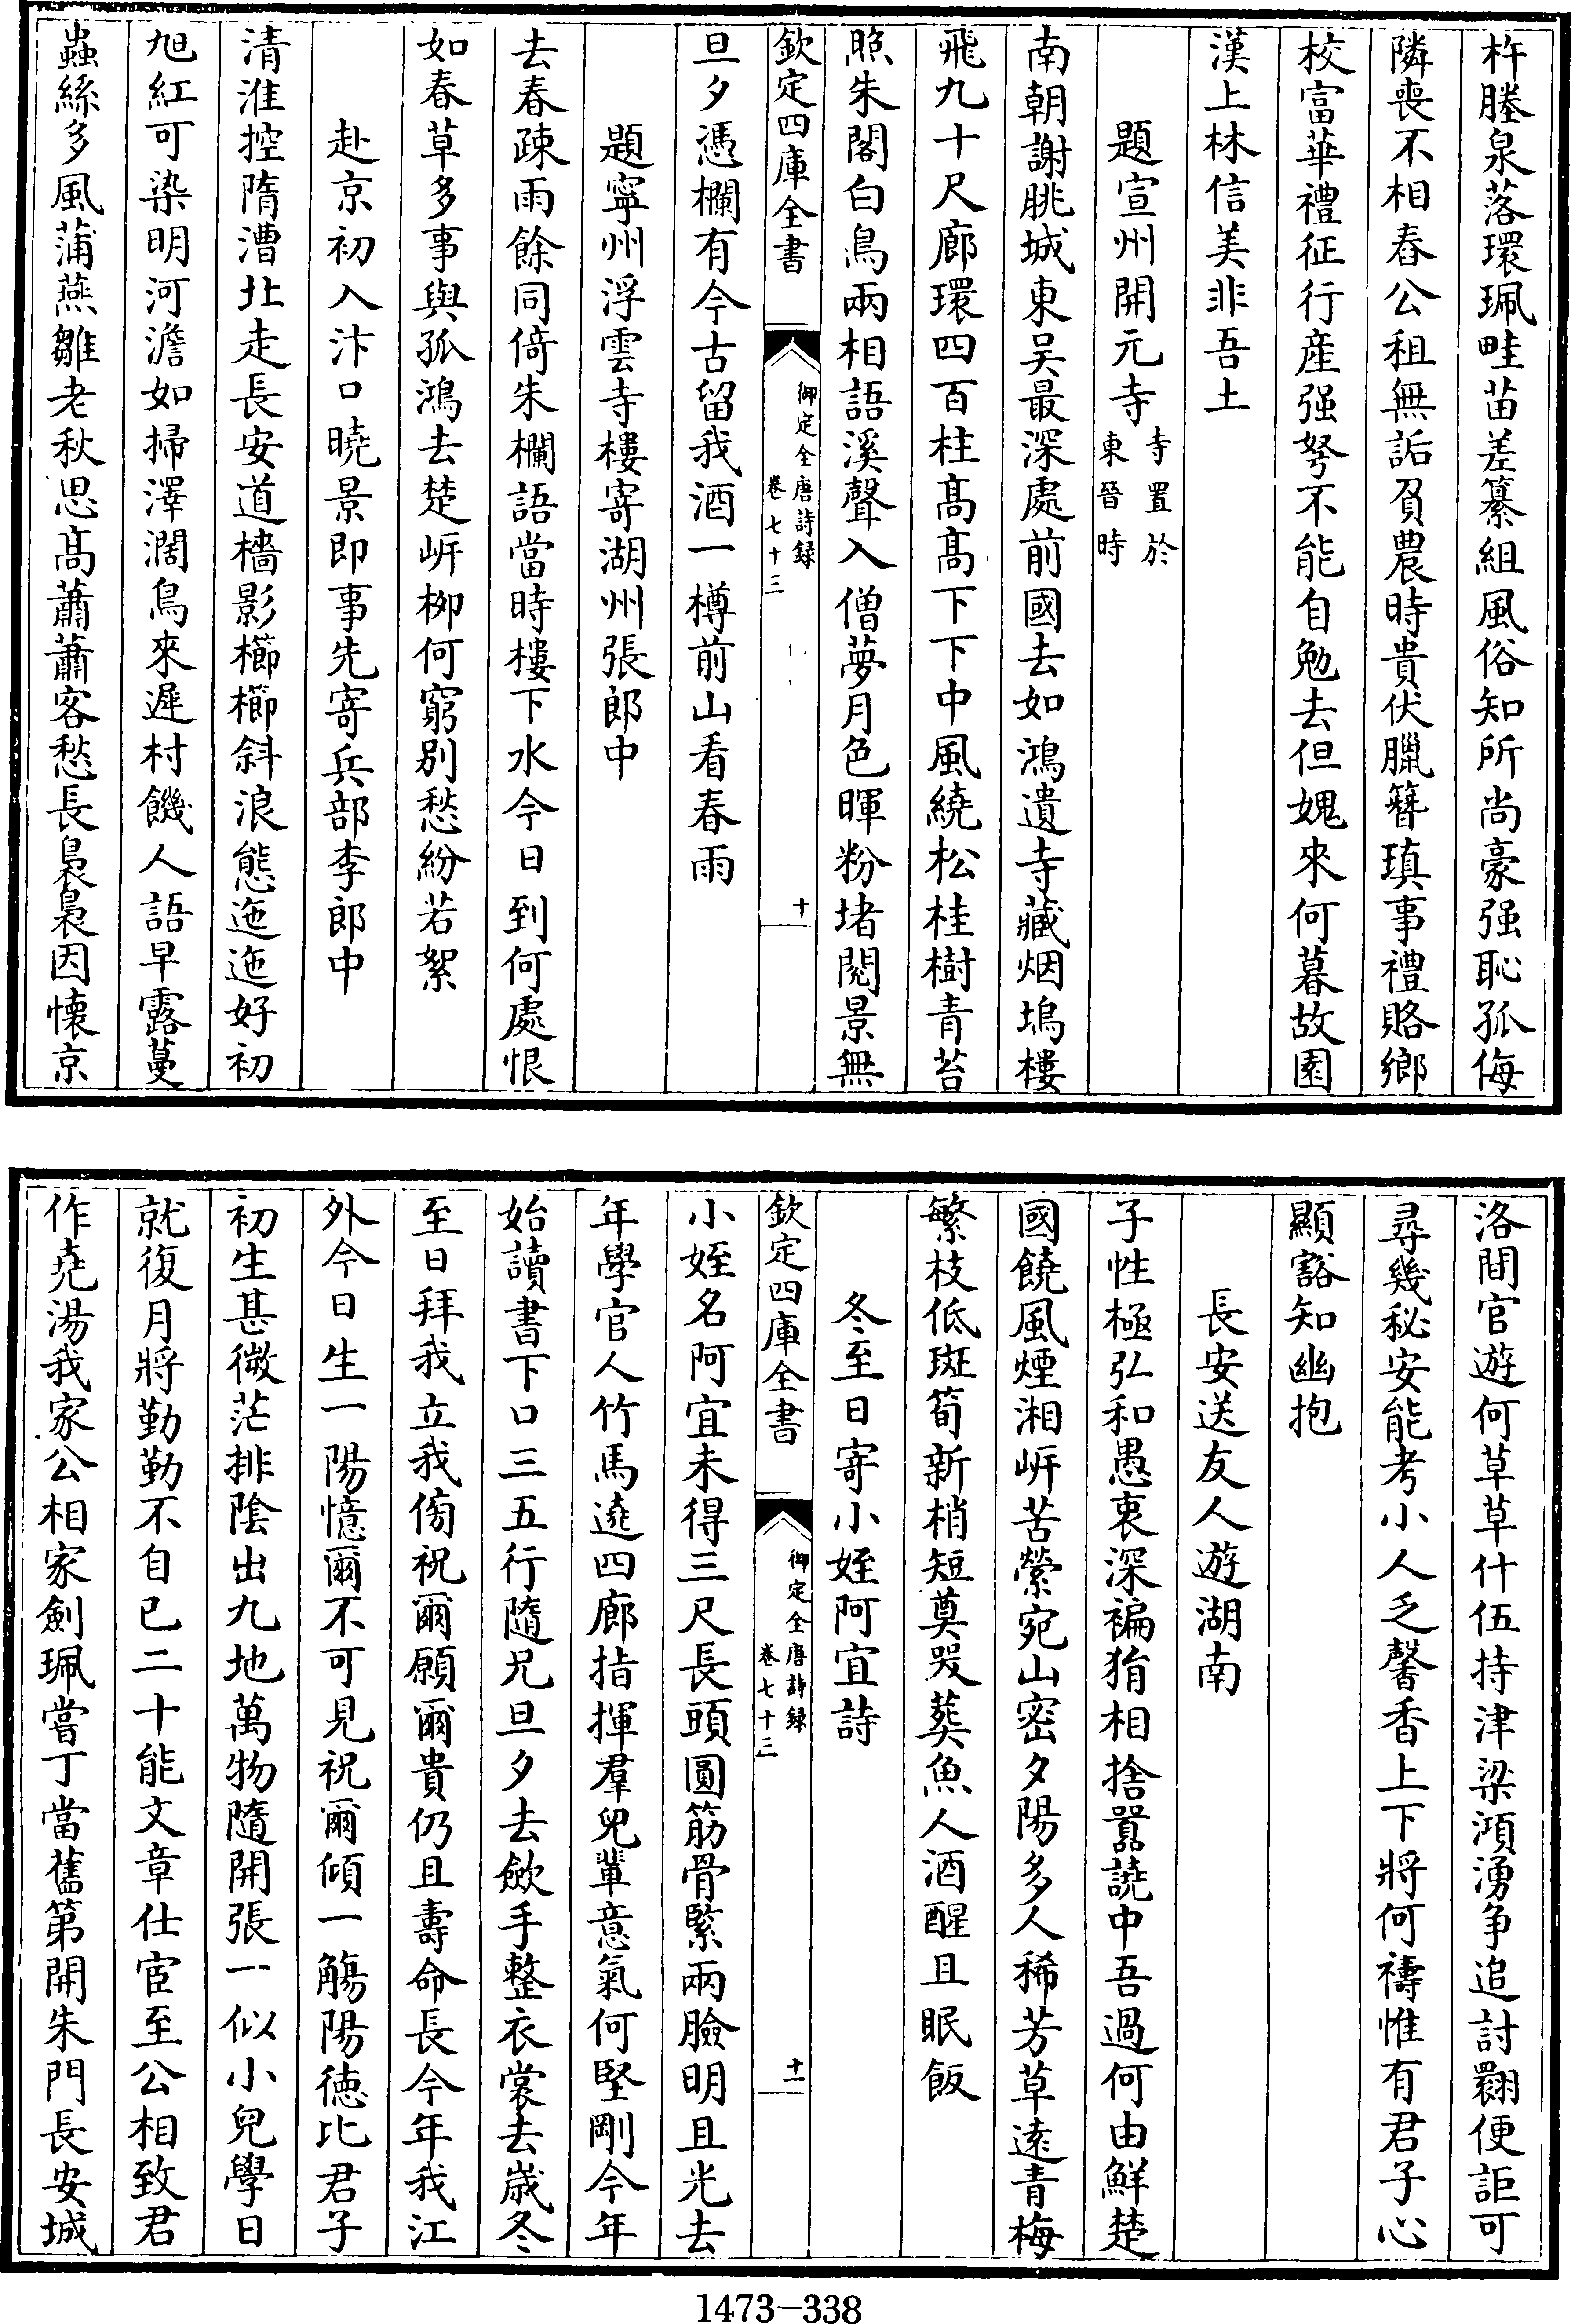 杵塍泉落環珮畦苗差纂組風俗知所尚豪强恥孤侮
隣喪不相舂公租無詬負農時貴伏臘簪瑱事禮賂鄉
校富華禮征行産强弩不能自勉去但媿來何暮故園
漢上林信美非吾土
題宣州開元寺寺置於東晉時
南朝謝朓城東吴最深處前國去如鴻遺寺藏烟塢樓
飛九十尺廊環四百柱髙髙下下中風繞松桂樹青苔
照朱閣白鳥兩相語溪聲入僧夢月色暉粉堵閱景無
欽定四庫全書
御定全唐詩録
卷七十三
十
旦夕憑欄有今古留我酒一樽前山看春雨
題寧州浮雲寺樓寄湖州張郎中
去春疎雨餘同倚朱欄語當時樓下水今日到何處恨
如春草多事與孤鴻去楚岍栁何窮别愁紛若絮
赴京初入汴口曉景即事先寄兵部李郎中
清淮控隋漕北走長安道檣影櫛櫛斜浪態迤迤好初
旭紅可染明河澹如掃澤濶鳥來遲村饑人語早露蔓
蟲絲多風蒲燕雛老秋思髙蕭蕭客愁長裊裊因懷京
洛間官遊何草草什伍持津梁澒湧争追討翾便詎可
尋幾秘安能考小人乏馨香上下將何禱惟有君子心
顯豁知幽抱
長安送友人遊湖南
子性極弘和愚衷深褊狷相捨囂譊中吾過何由鮮楚
國饒風煙湘岍苦縈宛山密夕陽多人稀芳草逺青梅
繁枝低斑筍新梢短莫哭葬魚人酒醒且眠飯
冬至日寄小姪阿宜詩
欽定四庫全書
御定全唐詩録
卷七十三
十一
小姪名阿宜未得三尺長頭圓筋骨緊兩臉明且光去
年學官人竹馬遶四廊指揮羣兒輩意氣何堅剛今年
始讀書下口三五行隨兄旦夕去歛手整衣裳去歲冬
至日拜我立我傍祝爾願爾貴仍且壽命長今年我江
外今日生一陽憶爾不可見祝爾傾一觴陽徳比君子
初生甚微茫排陰出九地萬物隨開張一似小兒學日
就復月將勤勤不自已二十能文章仕宦至公相致君
作尭湯我家公相家劍珮嘗丁當舊第開朱門長安城
1473-338